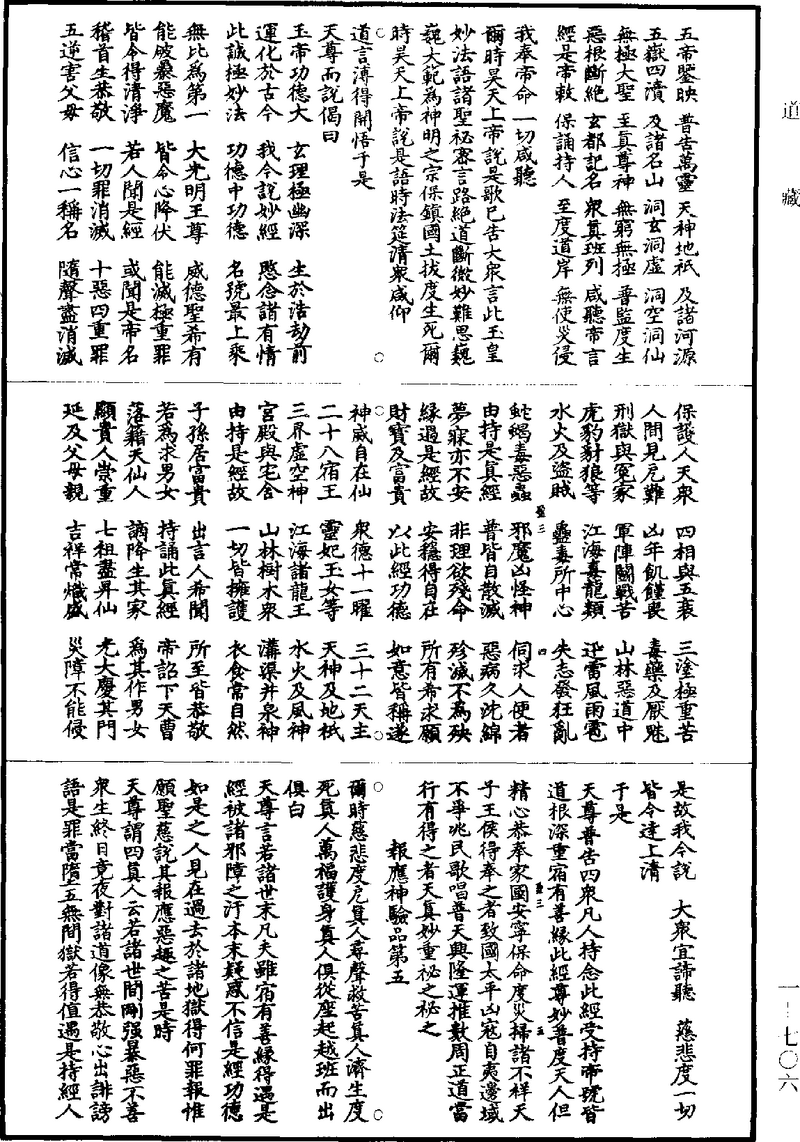 道藏
五帝鑒映　普告萬靈　天神地祇　及諸河源
五嶽四瀆　及諸名山　洞玄洞虛　洞空洞仙
無極大聖　至真尊神　無窮無極　普監度生
惡根斷絕　玄都記名　衆真班列　咸聽帝言
經是帝敕　保誦持人　至度道岸　無使災侵
我奉帝命　一切咸聽
爾時昊天上帝說是歌已告大衆言此玉皇
妙法語諸聖祕密言路絕道斷微妙難思巍
巍大範為神明之宗保鎮國土拔度生死爾
時昊天上帝說是語時法筵清衆咸仰
道言溥得開悟于是
天尊而說偈曰
玉帝功德大　玄理極幽深　生於浩劫前
運化於古今　我今說妙經　愍念諸有情
此誠極妙法　功德中功德　名號最上乘
無比為第一　大光明王尊　威德聖希有
能破暴惡魔　皆令心降伏　能滅極重罪
皆令得清淨　若人聞是經　或聞是帝名
稽首生恭敬　一切罪消滅　十惡四重罪
五逆害父母　信心一稱名　隨聲盡消滅
保護人天衆　四相與五衰　三塗極重苦
人間見厄難　凶年飢饉喪　毒藥及厭魅
刑獄與冤家　軍陣鬬戰苦　山林惡道中
虎豹豺狼等　江海毒龍類　迅雷風雨雹
水火及盜賊　蠱毒所中心　失志發狂亂
蚖蝎毒惡蟲　邪魔凶怪神　伺求人便者
由持是真經　普皆自散滅　惡病久沈綿
夢寐亦不安　非理欲殘命　殄滅不為殃
緣遇是經故　安穩得自在　所有希求願
財寶及富貴　以此經功德　如意皆稱遂
神威自在仙　衆德十一曜　三十二天主
二十八宿王　靈妃玉女等　天神及地祇
三界虛空神　江海諸龍王　水火及風神
宮殿與宅舍　山林樹木衆　溝渠井泉神
由持是經故　一切皆擁護　衣食常自然
子孫居富貴　出言人希聞　所至皆恭敬
若為求男女　持誦此真經　帝詔下天曹
落籍天仙人　謫降生其家　為其作男女
顯貴人崇重　七祖盡昇仙　光大慶其門
延及父母親　吉祥常熾盛　災障不能侵
是故我今說　大衆宜諦聽　慈悲度一切
皆令達上清
于是
天尊普告四衆凡人持念此經受持帝號皆
道根深重宿有善緣此經尊妙普度天人但
精心恭奉家國安寧保命度災掃諸不祥天
子王侯得奉之者致國太平凶寇自夷邊域
不爭兆民歌唱普天興隆運推數周正道當
行有得之者天真妙重祕之祕之
報應神驗品第五
爾時慈悲度厄真人尋聲救苦真人濟生度
死真人萬福護身真人俱從座起越班而出
俱白
天尊言若諸世末凡夫雖宿有善緣得遇是
經被諸邪障之汙本末疑惑不信是經功德
如是之人見在過去於諸地獄得何罪報惟
願聖慈說其報應惡趣之苦是時
天尊謂四真人云若諸世間剛強暴惡不善
衆生終日竟夜對諸道像無恭敬心出誹謗
語是罪當隋五無間獄若得值遇是持經人
一—七〇六